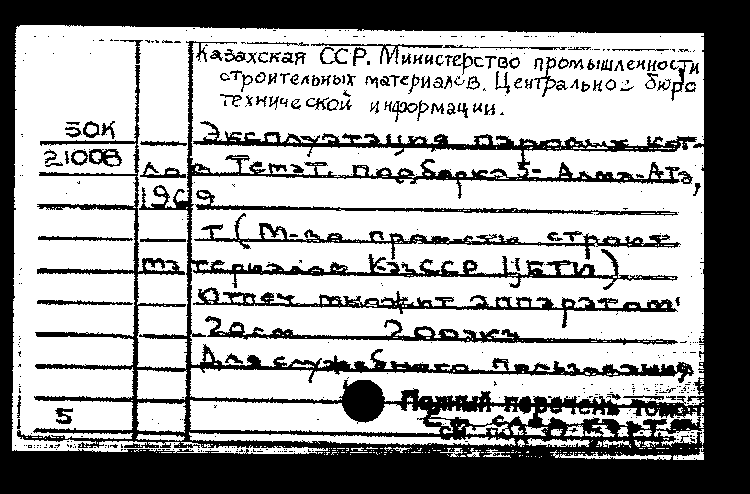 Казахская ССР. Министерство промышленности
строительных материалов. Центральное бюро
технической информации.
50К Эксплуатация паровых кот-
21008 лов Темат. подборка 5- Алма-Ата,
1969
т (М-во пром-сти строит
материалов КазССР ЦБТИ)
Отпеч множит аппаратом
20см 200экз
Для служебного пользования
Полный перечень томов
5 см. след карт